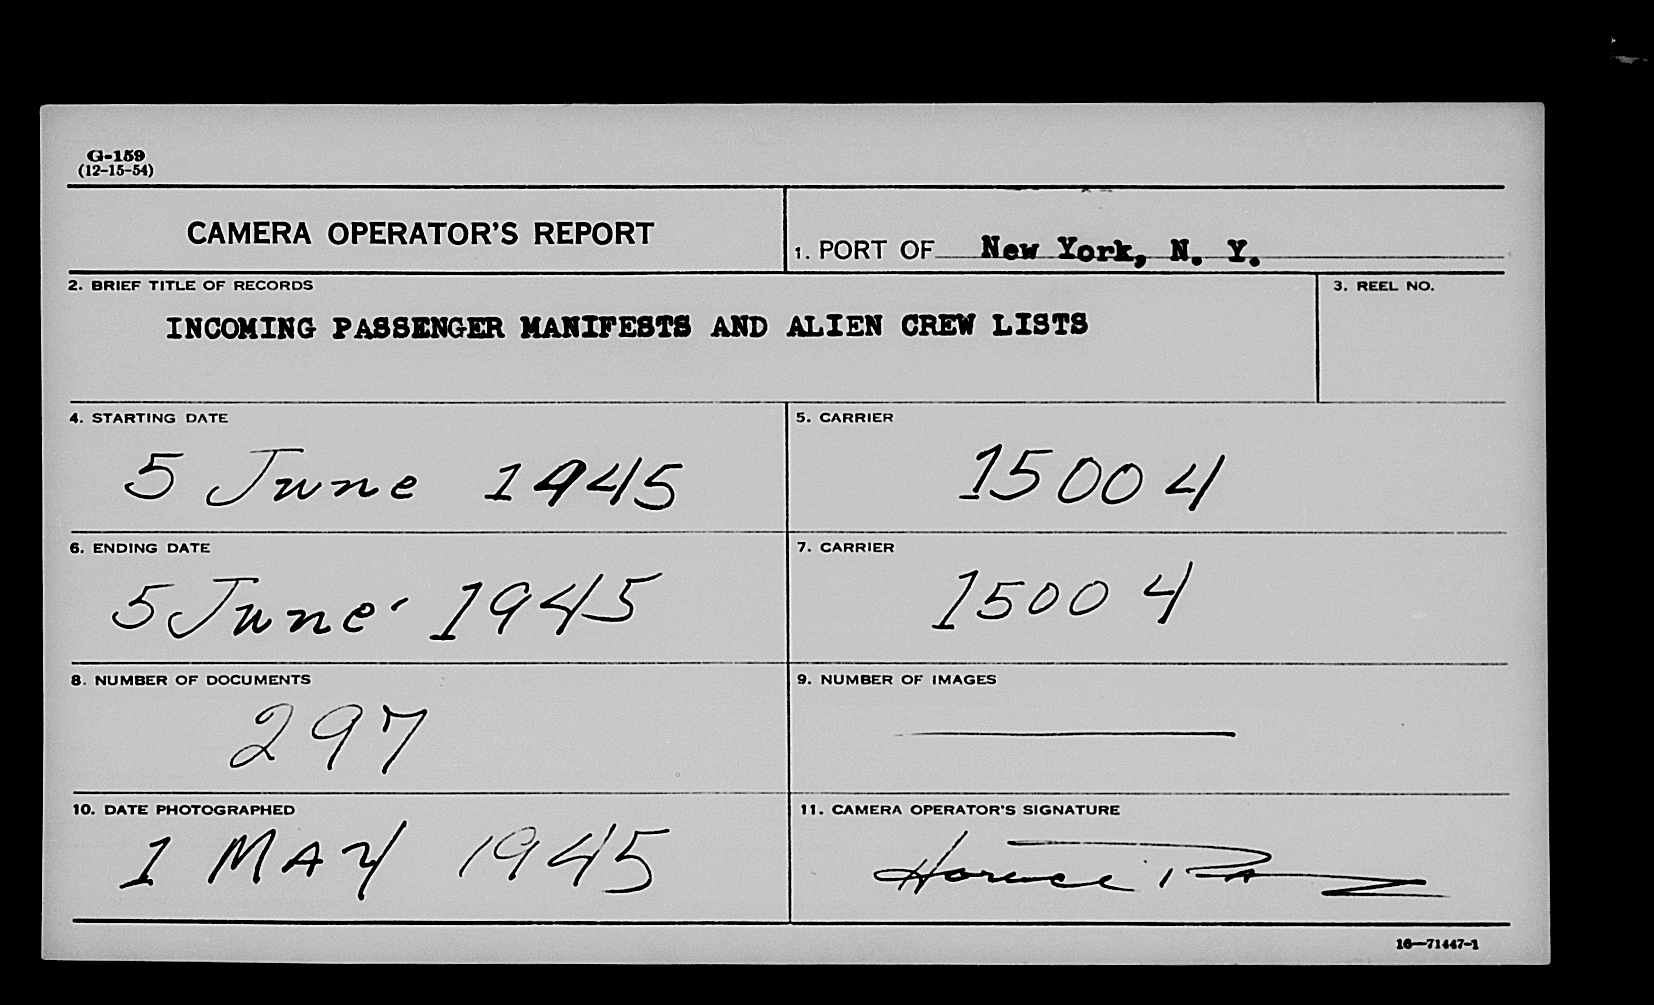 G-159
(12-15-54)
CAMERA OPERATOR'S REPORT
1. PORT OF New York, N. Y.
2. BRIEF TITLE OF RECORDS
INCOMING PASSENGER MANIFESTS AND ALIEN CREW LISTS
3. REEL NO.
4. STARTING DATE
5 June 1945
5. CARRIER
15004
6. ENDING DATE
5 June 1945
7. CARRIER
15004
8. NUMBER OF DOCUMENTS
297
9. NUMBER OF IMAGES
10. DATE PHOTOGRAPHED
1 MAY 1945
11. CAMERA OPERATOR'S SIGNATURE
16—71447-1